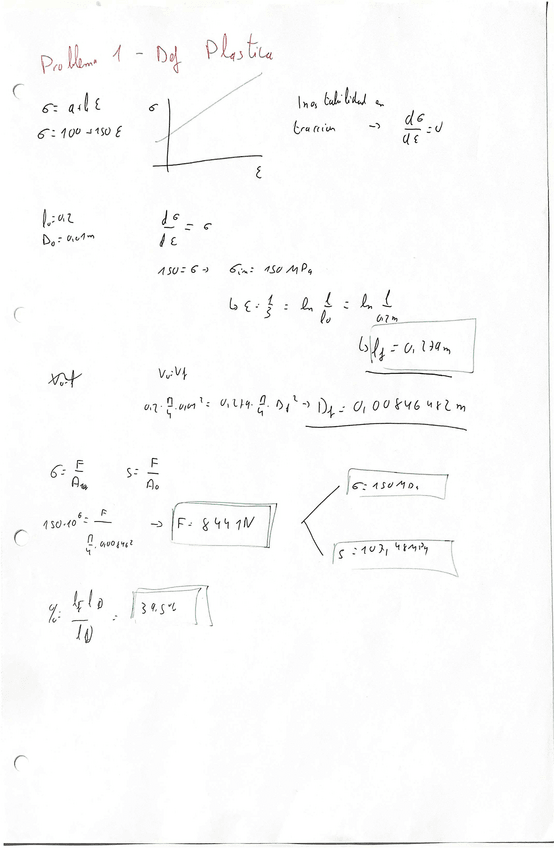 Problema 1 - Def Plastica
σ = a+b ε
σ = 100+150 ε
σ
ε
Inestabilidad en
traccion → dσ/dε = σ
l₀ = 0,2
D₀ = 0,01m
dσ/dε = σ
150 = σ → σin = 150 MPa
↳ ε = 1/3 = ln l/l₀ = ln l/0,2m
↳ lf = 0,279m
V₀ = Vf
0,2 · π/4 · 0,01² = 0,279 · π/4 · Df² → Df = 0,00846482 m
σ = F/A
S = F/A₀
150·10⁶ = F / π/4 · 0,00846² → F = 8441N
σ = 150 MPa
S = 107,48 MPa
% = lf l₀ / l₀ = 39,5%